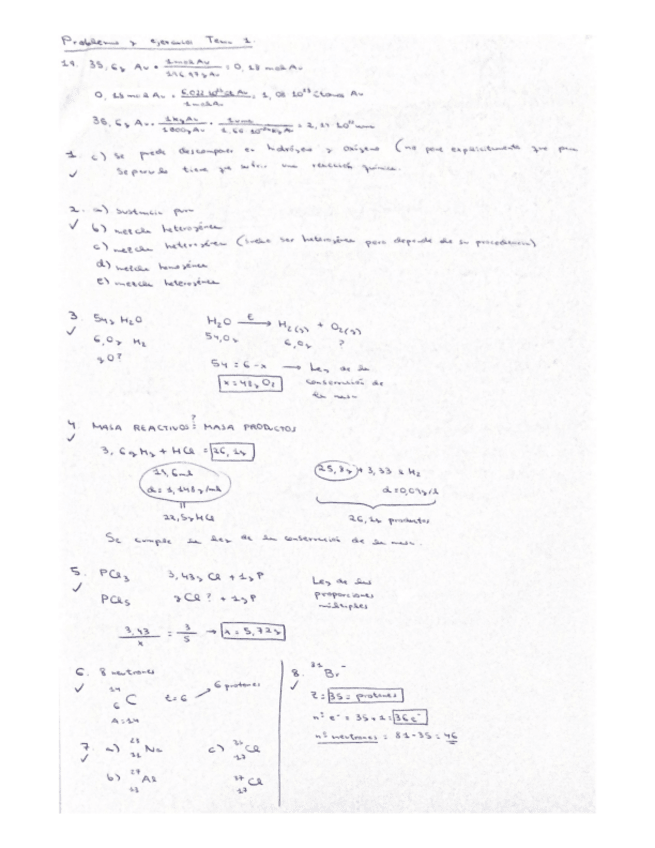 Problemas y ejercicios Tema 1.
19. 35,6g Au · 1mol Au / 196,97g Au = 0,18 mol Au
0,18 mol Au · 6,022 10²³ át Au / 1mol Au = 1,08 10²³ átomos Au
35,6g Au · 1kg Au / 1000g Au · 1uma / 1,66 10⁻²⁷ kg Au = 2,14 10²⁵ uma
1. c) Se puede descomponer en hidrógeno y oxígeno (no pone explícitamente que para
✓ separarla tiene que sufrir una reacción química.
2. a) sustancia pura
✓ b) mezcla heterogénea
c) mezcla heterogénea (suele ser heterogénea pero depende de su procedencia)
d) mezcla homogénea
e) mezcla heterogénea
3 54g H₂O H₂O E→ H₂(g) + O₂(g)
✓ 6,0g H₂ 54,0g 6,0g ?
gO? 54 = 6 - x → Ley de la
x = 48g O₂ conservación de
la masa
4 MASA REACTIVOS =? MASA PRODUCTOS
✓ 3,6g Mg + HCl = 26,1g
19,6ml 25,8g + 3,33 L H₂
d = 1,148g/ml d = 0,09g/L
22,5g HCl 26,1g productos
Se cumple la ley de la conservación de la masa.
5. PCl₃ 3,43g Cl + 1g P Ley de las
✓ PCl₅ gCl? + 1g P proporciones
múltiples
3,43 / x = 3 / 5 → x = 5,72g
6. 8 neutrones
✓ ¹⁴₆C Z=6 → 6 protones
A=14
7. a) ²³₁₁Na c) ³⁵₁₇Cl
✓ b) ²⁷₁₃Al ³⁷₁₇Cl
8. ⁸¹Br⁻
✓ Z = 35 = protones
nº e⁻ = 35 + 1 = 36 e⁻
nº neutrones = 81 - 35 = 46